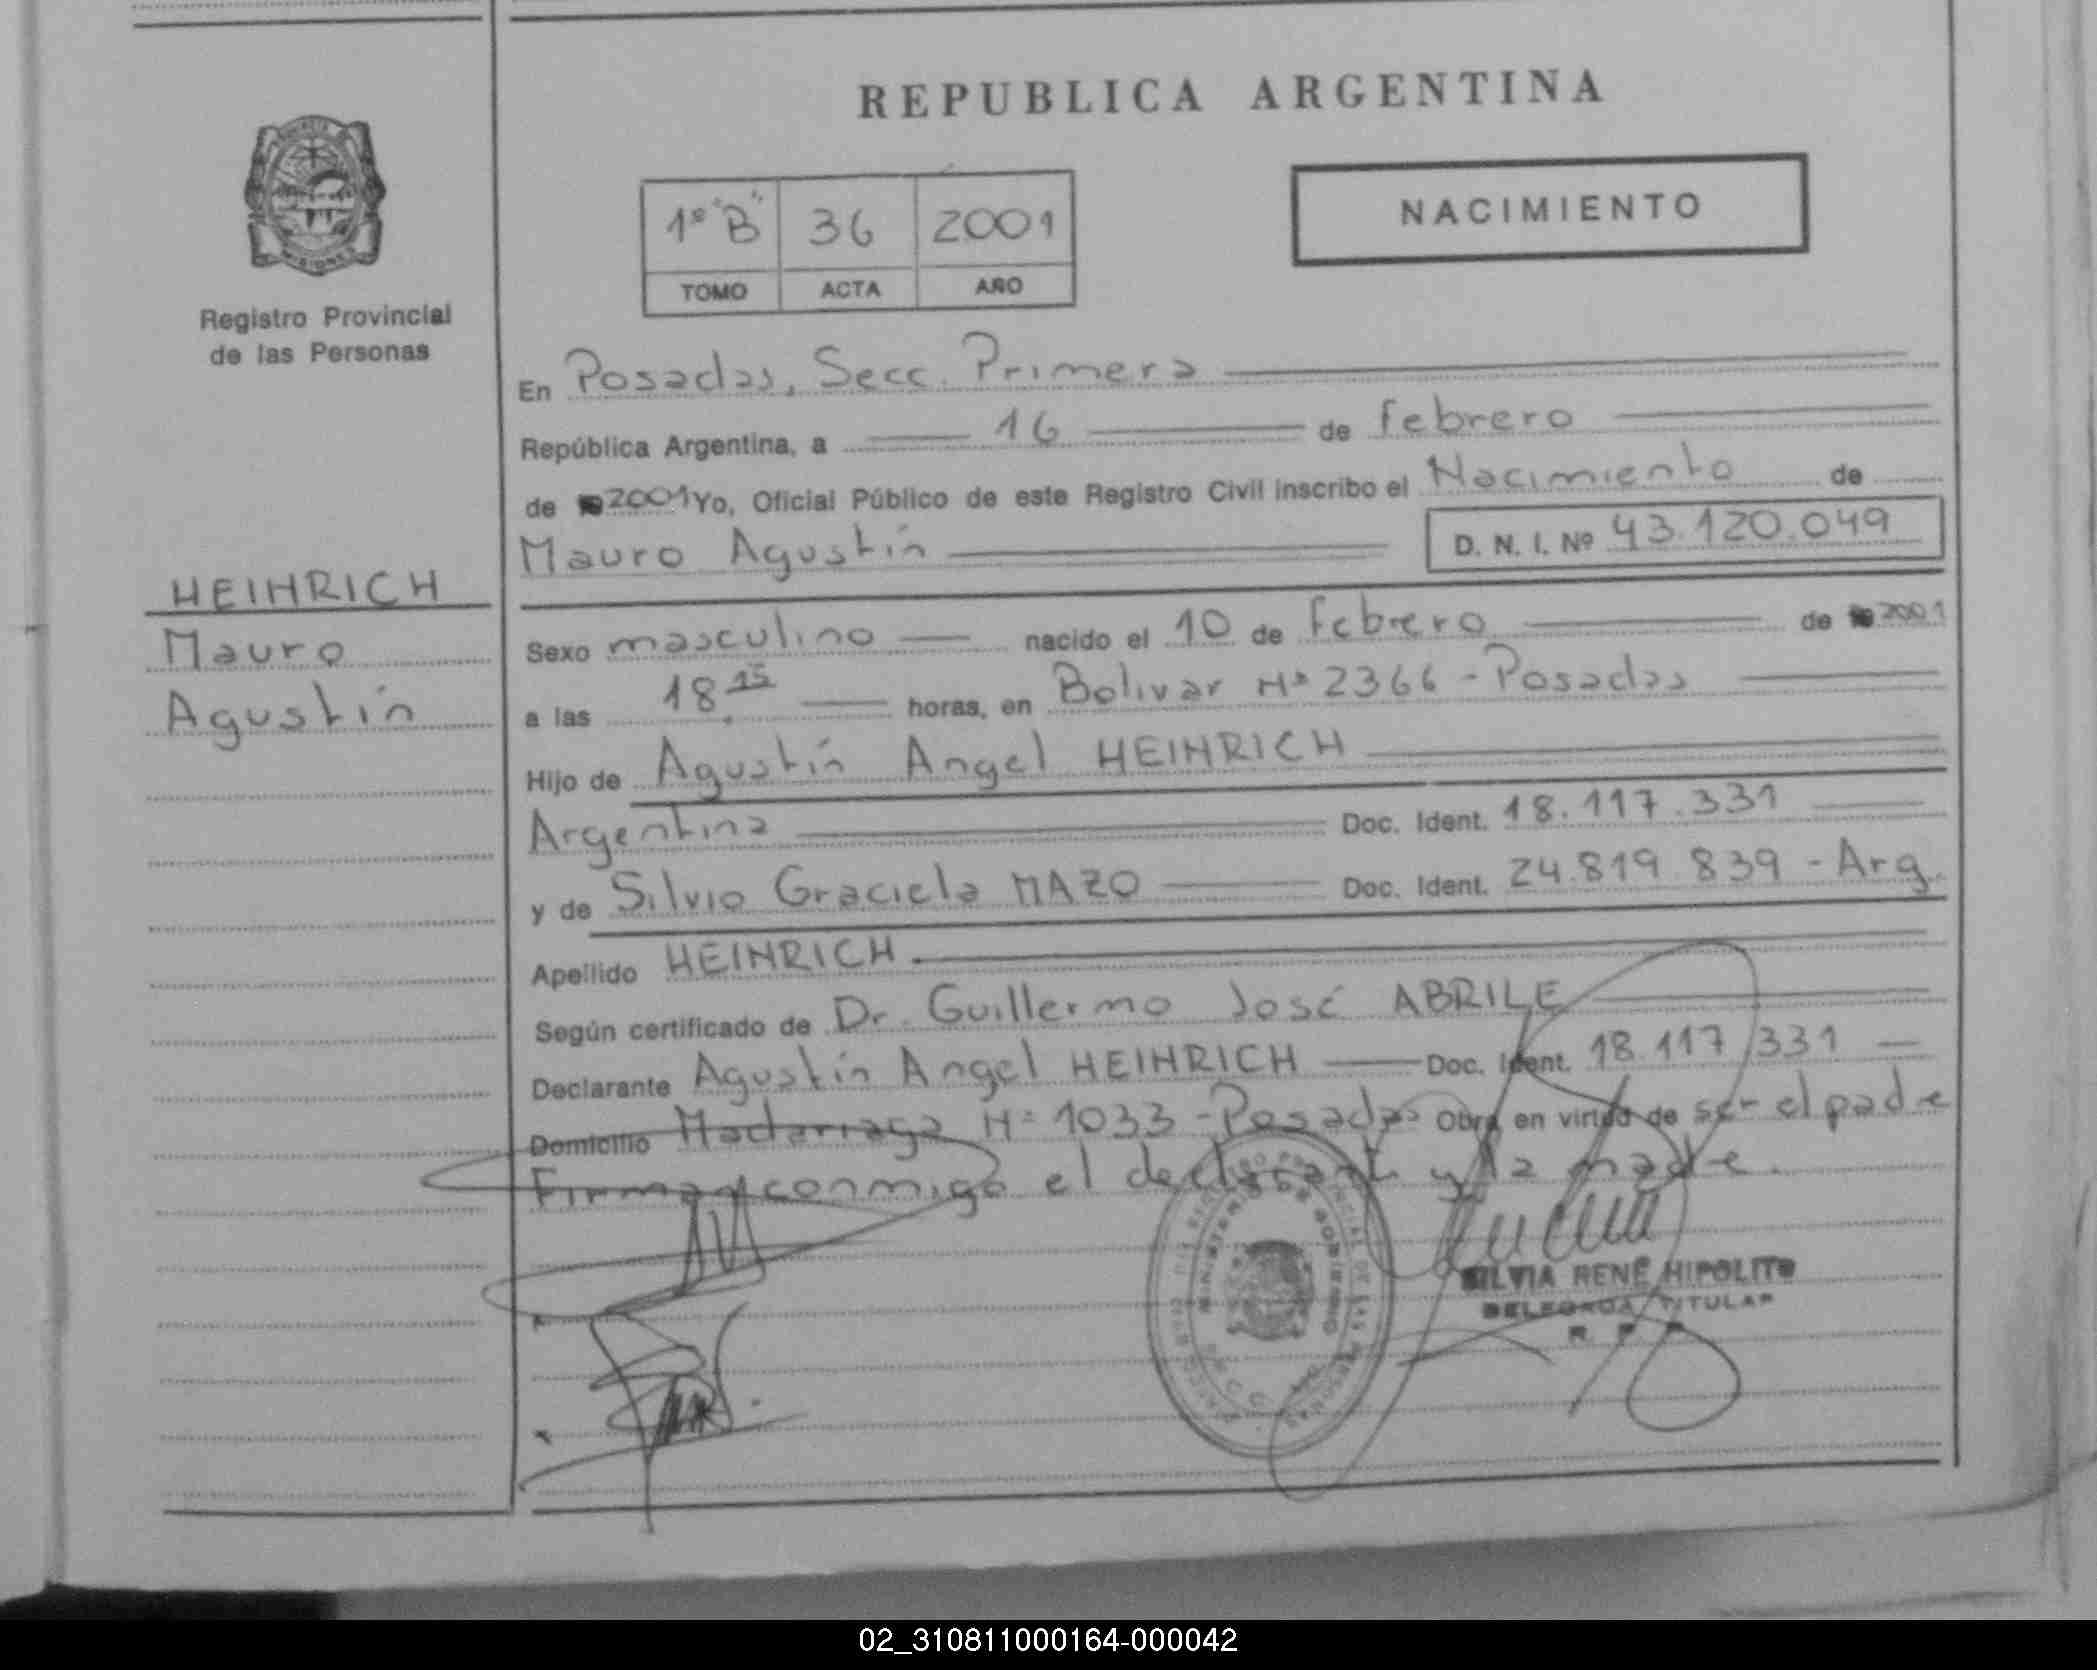 REPUBLICA ARGENTINA
1º "B" 36 2001
TOMO ACTA AÑO
NACIMIENTO
MISIONES
Registro Provincial
de las Personas
En Posadas, Secc. Primera
República Argentina, a 16 de Febrero
de 2001 Yo, Oficial Público de este Registro Civil inscribo el Nacimiento de
Mauro Agustín D. N. I. Nº 43.120.049
HEINRICH
Mauro
Agustín
Sexo masculino nacido el 10 de Febrero de 2001
a las 18 15 horas, en Bolivar Nº 2366 - Posadas
Hijo de Agustín Angel HEINRICH
Argentina Doc. Ident. 18.117.331
y de Silvia Graciela MAZO Doc. Ident. 24.819.839 - Arg.
Apellido HEINRICH
Según certificado de Dr. Guillermo José ABRILE
Declarante Agustín Angel HEINRICH Doc. Ident. 18.117.331
Domicilio Madariaga Nº 1033 - Posadas Obra en virtud de ser el padre
Firman conmigo el declarante y la madre.
MINISTERIO DE GOBIERNO
SILVIA RENÉ HIPOLITO
DELEGADA TITULAR
R P P
02_310811000164-000042